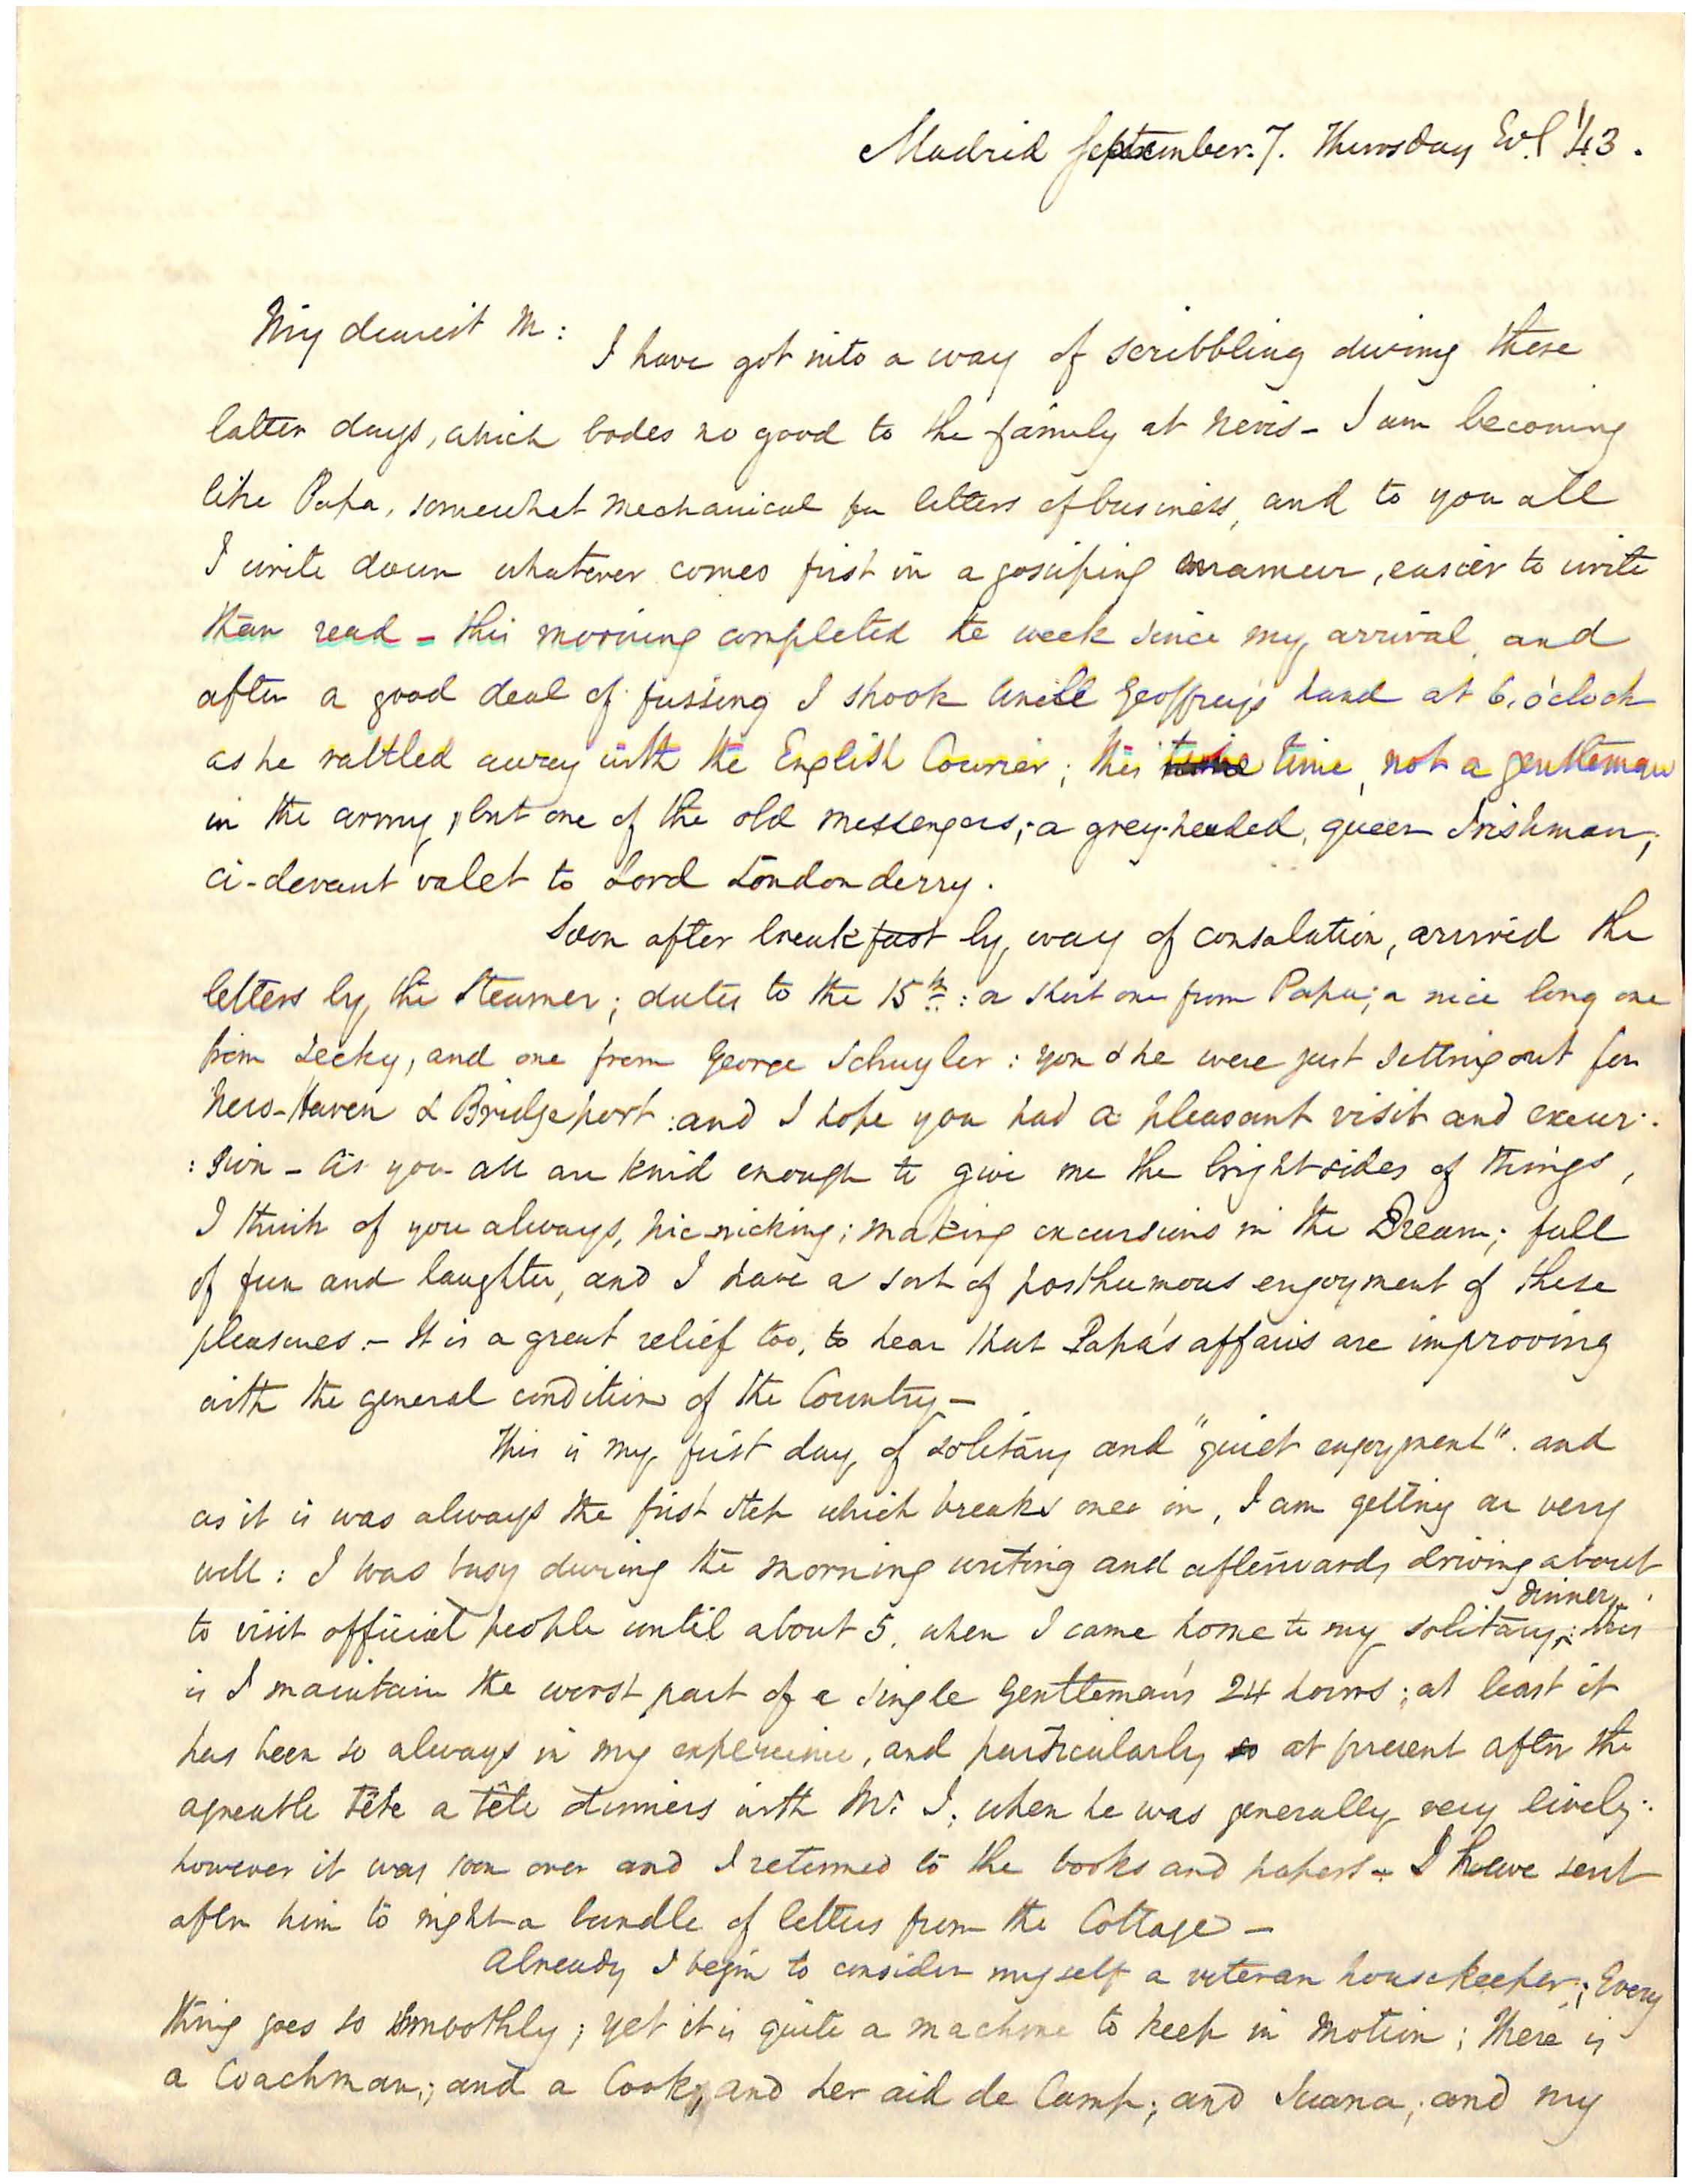 Madrid September 7. Thursday Ev.g '43.
My dearest M:
I have got into a way of scribbling during these
latter days, which bodes no good to the family at Nevis - I am becoming
like Papa, somewhat mechanical for letters of business, and to you all
I write down whatever comes first in a gossiping manner, easier to write
than read - this morning completed the week since my arrival, and
after a good deal of fussing I shook Uncle Geoffrey's hand at 6. o'clock
as he rattled away with the English Courier; this time, not a gentleman
in the army, but one of the old messengers; a grey-headed, queer Irishman,
ci-devant valet to Lord Londonderry.
Soon after breakfast by way of consolation, arrived the
letters by the Steamer; dates to the 15th: a short one from Papa; a nice long one
from Lecky, and one from George Schuyler: you & he were just setting out for
New-Haven & Bridgeport: and I hope you had a pleasant visit and excur-
:sion - As you all are kind enough to give me the bright sides of things,
I think of you always, pic-nicking; making excursions in the Dream; full
of fun and laughter, and I have a sort of posthumous enjoyment of these
pleasures. - It is a great relief too, to hear that Papa's affairs are improving
with the general condition of the Country -
This is my first day of solitary and "quiet enjoyment". and
as it is was always the first step which breaks one in, I am getting on very
well: I was busy during the morning writing and afterwards driving about
to visit official people until about 5. when I came home to my solitary dinner; this
is I maintain the worst part of a single gentleman's 24 hours; at least it
has been so always in my experience, and particularly so at present after the
agreeable tête a tête dinners with Mr. I. when he was generally very lively:
however it was soon over and I returned to the books and papers - I have sent
after him to night a bundle of letters from the Cottage -
Already I begin to consider myself a veteran housekeeper; Every
thing goes so smoothly; yet it is quite a machine to keep in motion; there is
a Coachman; and a Cook, and her aid de Camp; and Juana; and my